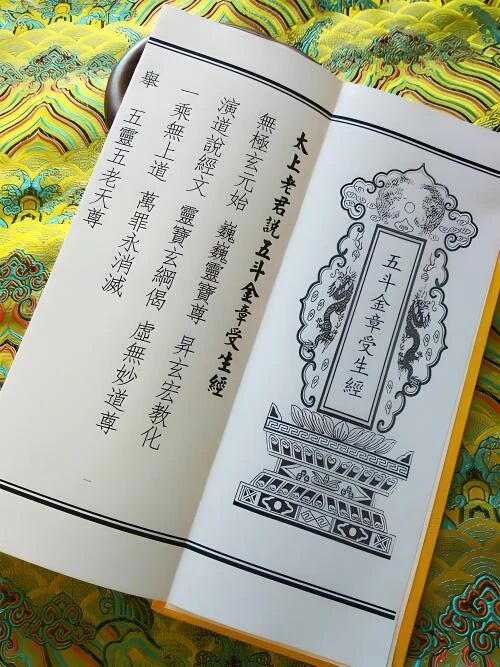 五斗金章受生經
太上老君說五斗金章受生經
無極玄元始 巍巍靈寶尊 昇玄宏教化
演道說經文 靈寶玄綱偈 虛無妙道尊
一乘無上道 萬罪永消滅
舉 五靈五老天尊
一